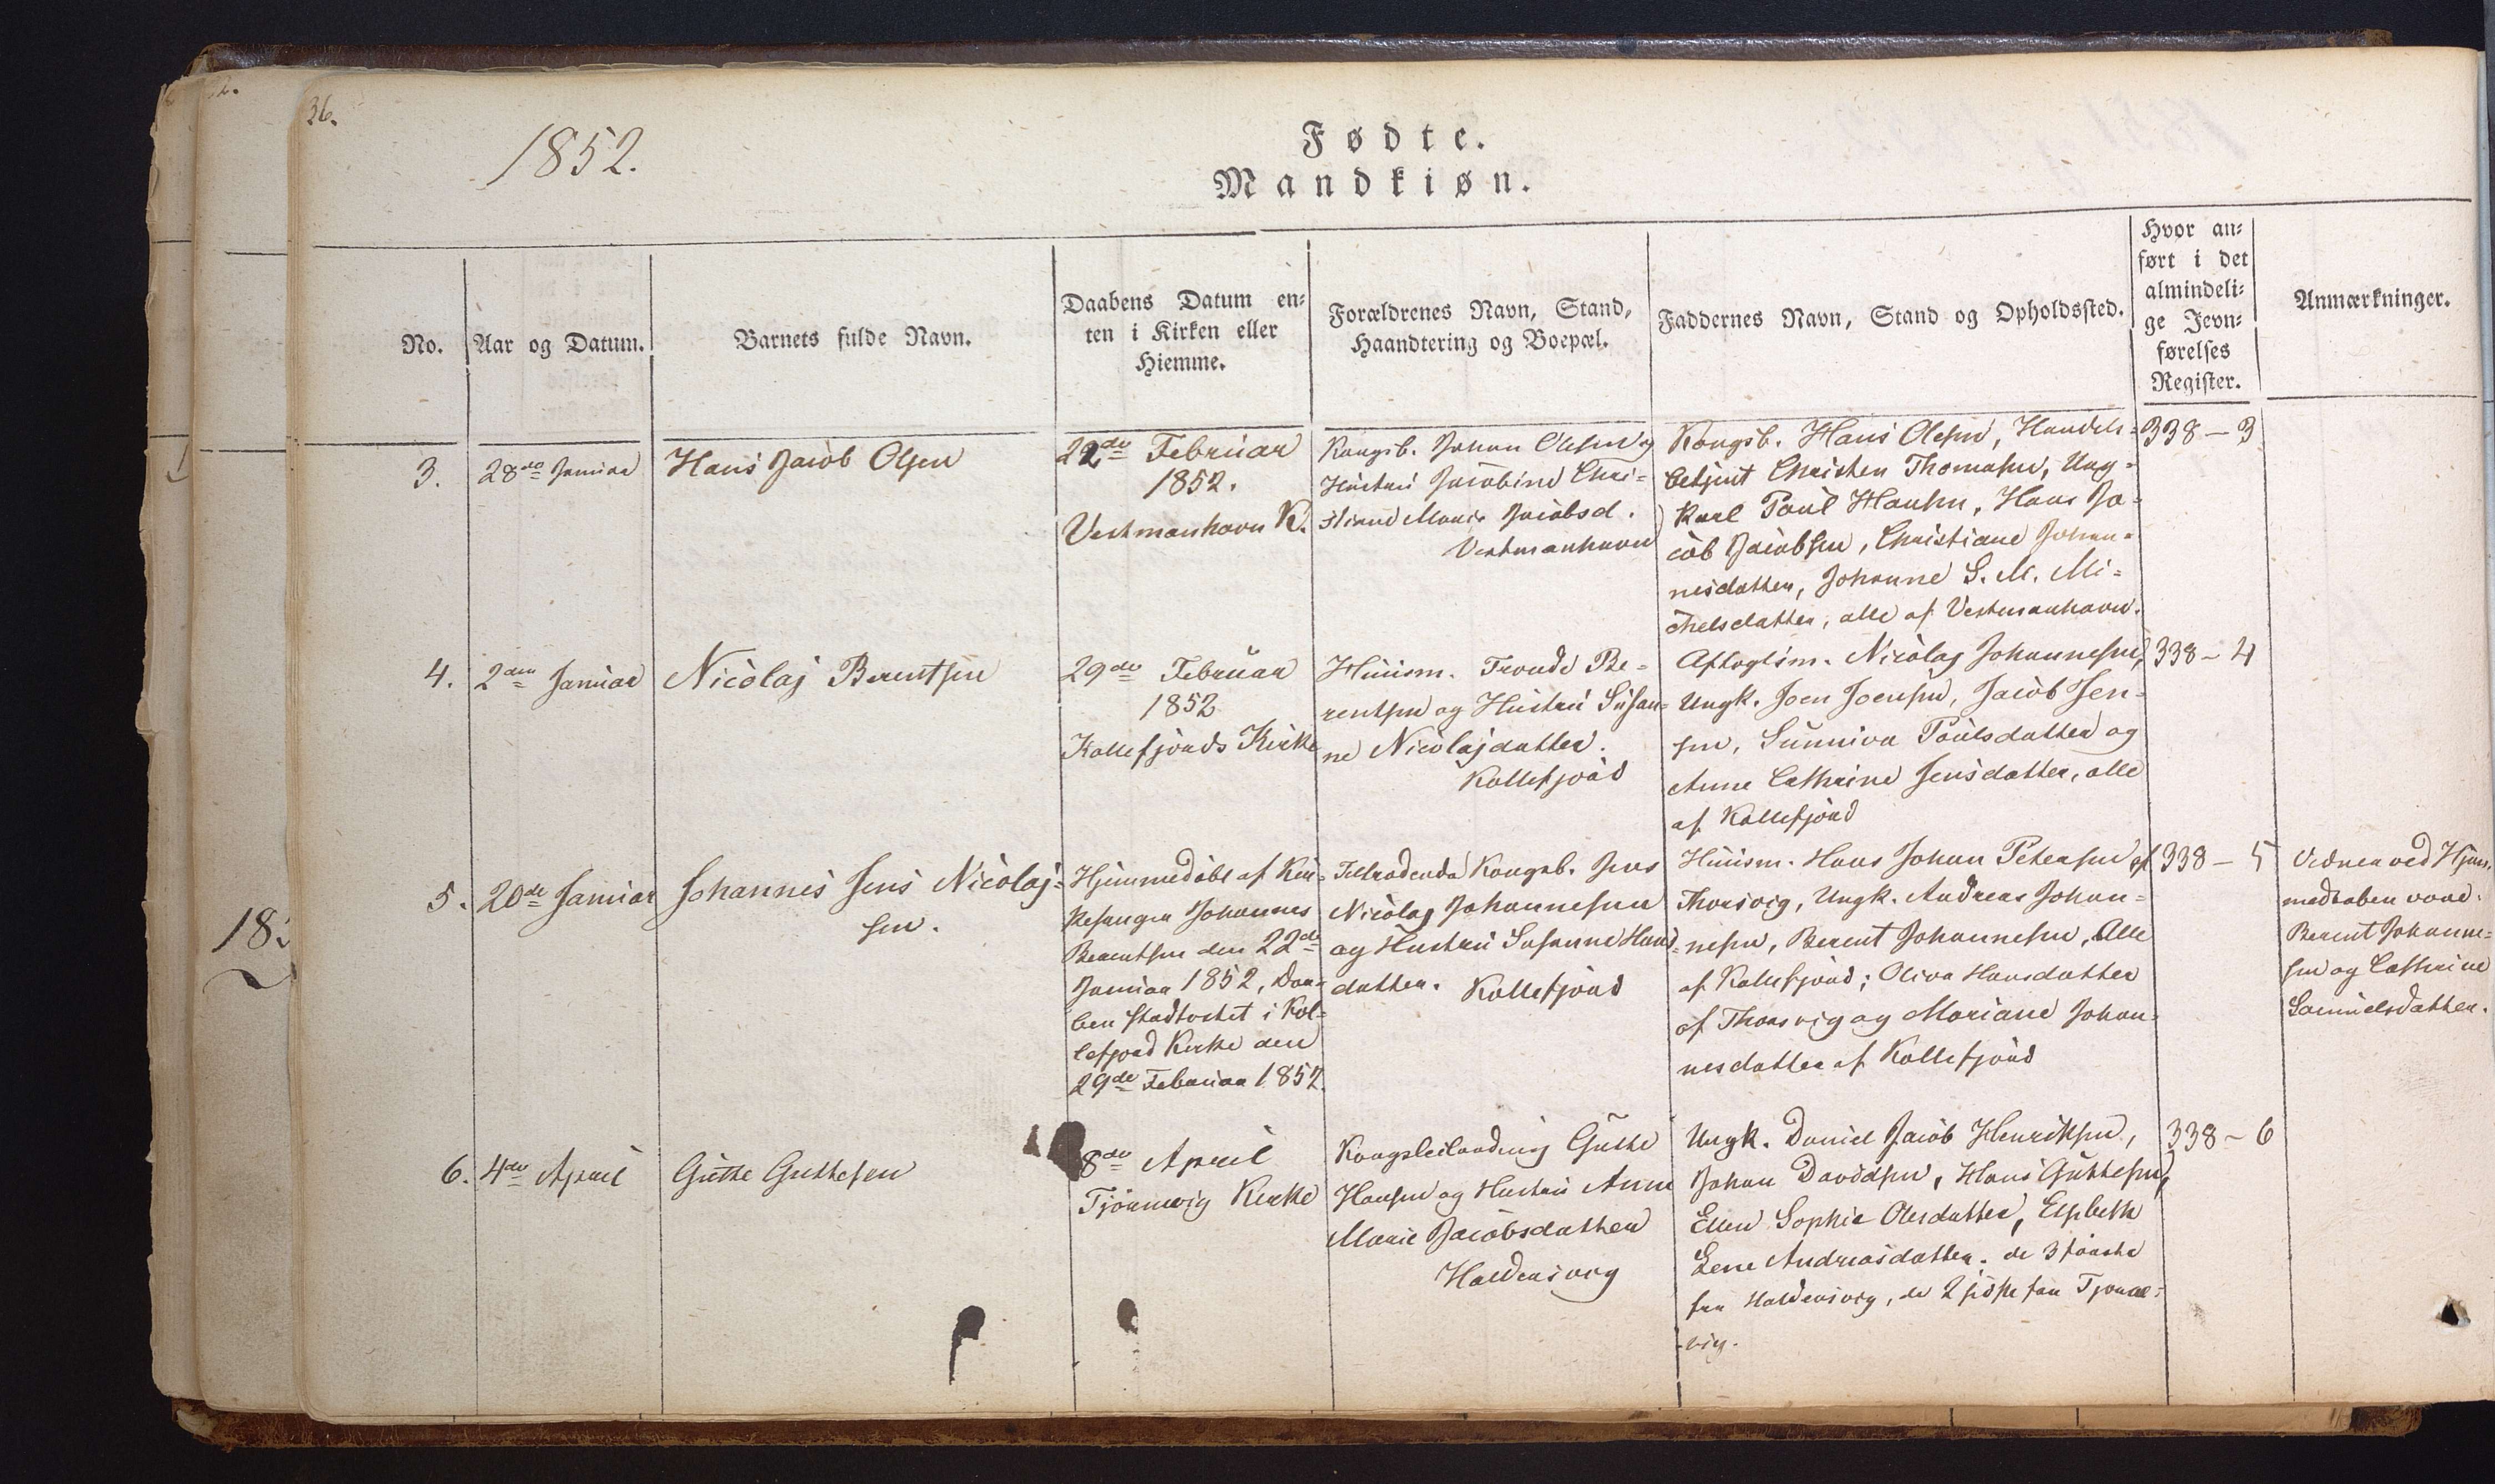 36.
1852.
Fødte.
Mandkiøn.
No.
Aar og Datum.
Barnets fulde Navn.
Daabens Datum en-
ten i Kirken eller
Hiemme.
Forældrenes Navn, Stand,
Haandtering og Boepæl.
Faddernes Navn, Stand og Opholdssted.
Hvor an-
ført i det
almindeli-
ge Jevn-
førelses
Register.
Anmærkninger.
3.
28de Januar
Hans Jacob Olsen
22de Februar
1852.
Vestmanhavn K.
Kongsb. Johan Olesen og
Hustru Jacobine Chri-
stiane Marie Jacobsd.
Vestmanhavn
Kongsb. Hans Olesen, Handels-
betjent Christen Thomasen, Ung-
karl Poul Hansen, Hans Ja-
cob Jacobsen, Christiane Johan-
nesdatter, Johanne S. M. Mi-
chelsdatter, alle af Vestmanhavn.
338 – 3
4.
2den Januar
Nicolaj Berentsen
29de Februar
1852
Kollefjords Kirke
Huusm. Tronde Be-
rentsen og Hustru Susan-
ne Nicolajdatter.
Kollefjord
Aftogtsm. Nicolaj Johannesen,
Ungk. Joen Joensen, Jacob Jen-
sen, Sunniva Poulsdatter og
Anne Cathrine Jensdatter, alle
af Kollefjord
338 – 4
5.
20de Januar
Johannes Jens Nicolaj-
sen.
Hjemmedøbt af Kir-
kesanger Johannes
Berentsen den 22de
Januar 1852, Daa-
ben stadfæstet i Kol-
lefjord Kirke den
29de Februar 1852.
Tiltrædende Kongsb. Jens
Nicolaj Johannesen
og Hustru Susanne Hans-
datter. Kollefjord
Huusm. Hans Johan Petersen af
Thorsvig, Ungk. Andreas Johan-
nesen, Berent Johannesen, Alle
af Kollefjord; Oliva Hansdatter
af Thorsvig og Mariane Johan-
nesdatter af Kollefjord
338 – 5
Vidner ved Hjem-
medaaben vare
Berent Johanne-
sen og Cathrine
Samuelsdatter.
6.
4de April
Gutte Guttesen
8de April
Tjørnevig Kirke
Kongsleilænding Gutte
Hansen og Hustru Anne
Marie Jacobsdatter
Haldersvig
Ungk. Daniel Jacob Henriksen,
Johan Davidsen, Hans Guttesen,
Ellen Sophie Olesdatter, Elsbeth
Lene Andreasdatter. de 3 første
fra Haldersvig, de 2 sidste fra Tjørne-
vig.
338 – 6